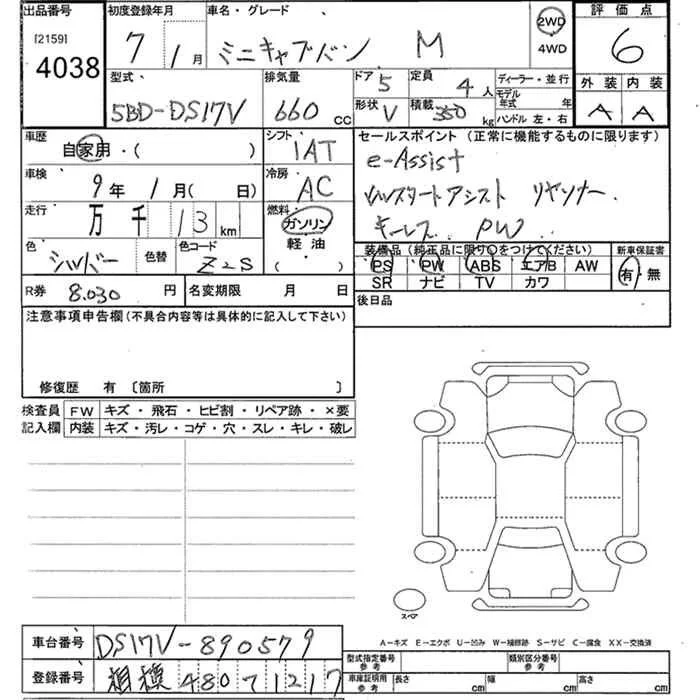 出品番号 初度登録年月 車名・グレード 評価点
[2159]
4038 7 1月 ミニキャブバン M 2WD 4WD 6
型式 排気量 ドア 5 定員 4人 ディーラー・並行 外装 内装
5BD-DS17V 660 CC 形状 V 積載 350 kg モデル年式 年 ハンドル 左・右 A A
車歴 自家用・( ) シフト 1AT セールスポイント (正常に機能するものに限ります)
車検 9年 1月( 日) 冷房 AC e-Assist
走行 万 千 13 km 燃料 ガソリン 軽油 ( )
キーレス PW
色 シルバー 色替 色コード Z2S 装備品 (純正品に限り○をつけてください) 新車保証書
PS PW ABS エアB AW 有・無
SR ナビ TV カワ
R券 8.030 円 名変期限 月 日 後日品
注意事項申告欄(不具合内容等は具体的に記入して下さい)
修復歴 有 〔箇所 〕
検査員 FW キズ・飛石・ヒビ割・リペア跡・×要
記入欄 内装 キズ・汚レ・コゲ・穴・スレ・キレ・破レ
スペア
A-キズ E-エクボ U-凹み W-補修跡 S-サビ C-腐食 XX-交換済
車台番号 DS17V-890579 型式指定番号 参考 類別区分番号 参考
登録番号 相模 480 フ 1217 車庫証明用 参考 長さ cm 幅 cm 高さ cm